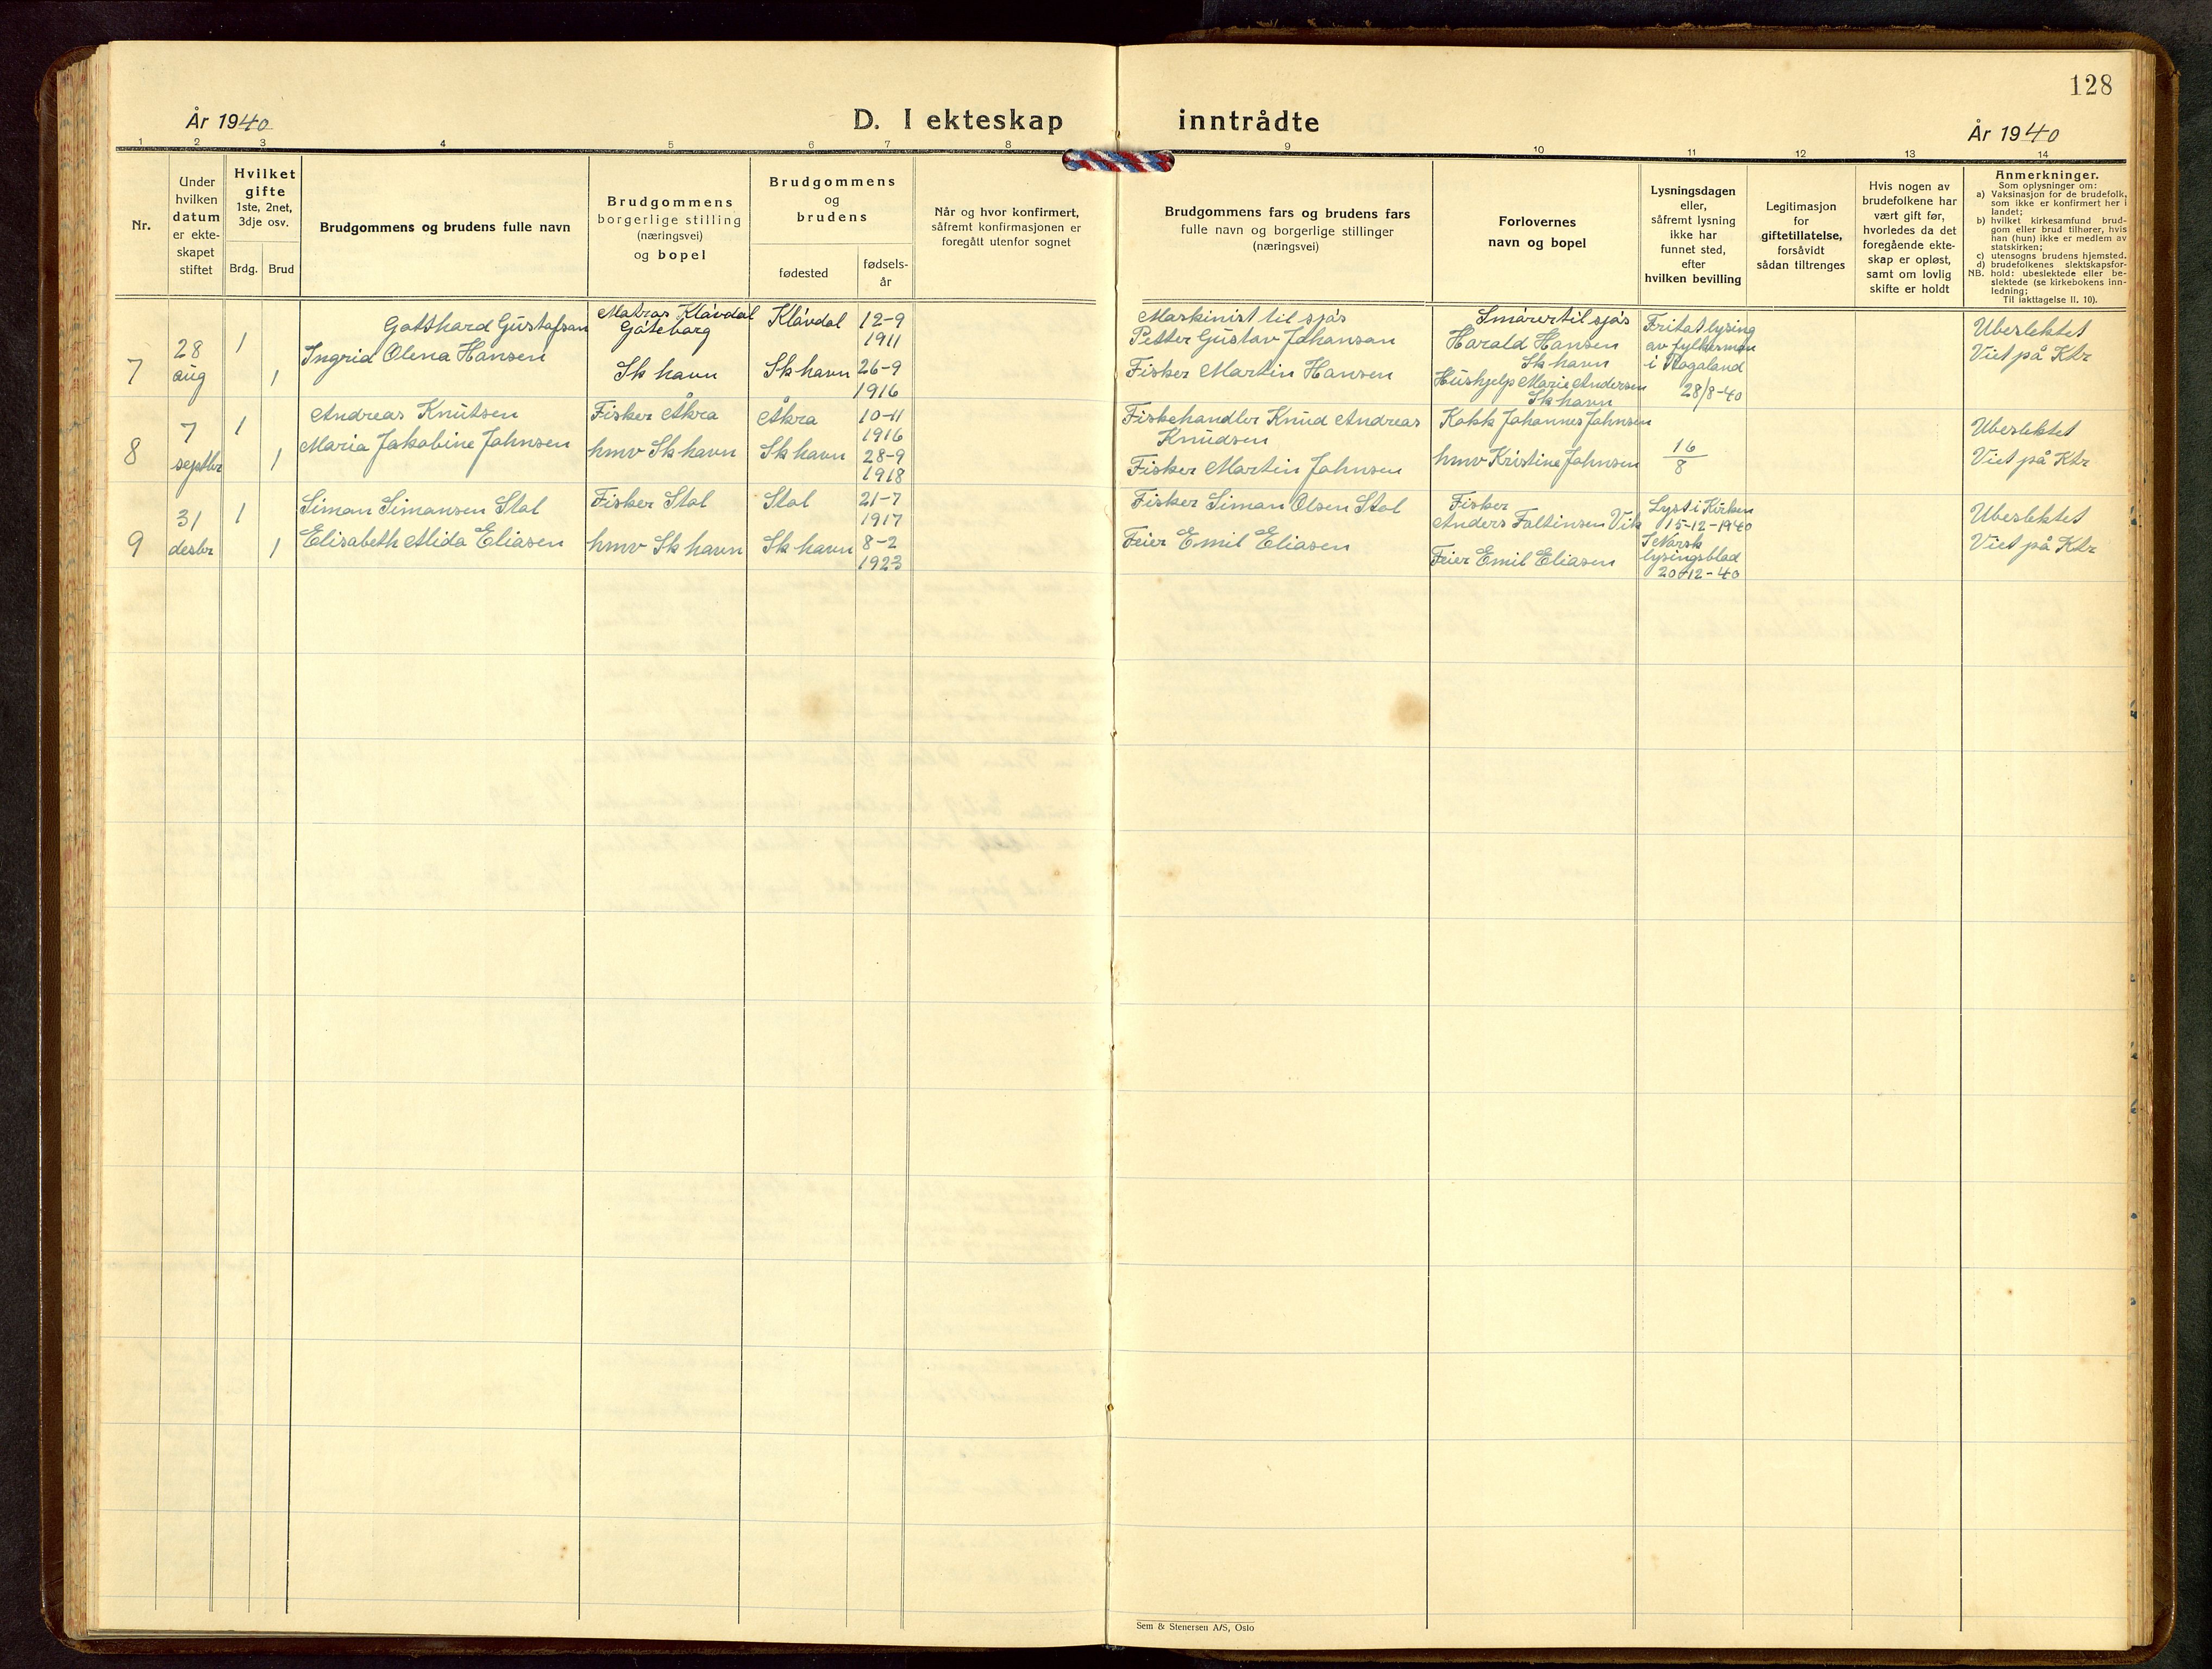 128
År 1940
D. I ekteskap inntrådte
År 1940
1 2 3 4 5 6 7 8 9 10 11 12 13 14
Nr.
Under
hvilken
datum
er ekte-
skapet
stiftet
Hvilket
gifte
1ste, 2net,
3dje osv.
Brdg.
Brud
Brudgommens og brudens fulle navn
Brudgommens
borgerlige stilling
(næringsvei)
og bopel
Brudgommens
og
brudens
fødested
fødsels-
år
Når og hvor konfirmert,
såfremt konfirmasjonen er
foregått utenfor sognet
Brudgommens fars og brudens fars
fulle navn og borgerlige stillinger
(næringsvei)
Forlovernes
navn og bopel
Lysningsdagen
eller,
såfremt lysning
ikke har
funnet sted,
efter
hvilken bevilling
Legitimasjon
for
giftetillatelse,
forsåvidt
sådan tiltrenges
Hvis nogen av
brudefolkene har
vært gift før,
hvorledes da det
foregående ekte-
skap er opløst,
samt om lovlig
skifte er holdt
Anmerkninger.
Som oplysninger om:
a) Vaksinasjon for de brudefolk,
som ikke er konfirmert her i
landet;
b) hvilket kirkesamfund brud-
gom eller brud tilhører, hvis
han (hun) ikke er medlem av
statskirken;
c) utensogns brudens hjemsted.
d) brudefolkenes slektskapsfor-
NB. hold: ubeslektede eller be-
slektede (se kirkebokens inn-
ledning;
Til iakttagelse II. 10).
7
28
aug
1
1
Gotthard Gustafson
Ingrid Olena Hansen
Matros Klåvdal
Gøteborg
Sk havn
Klåvdal
Sk havn
12-9
1911
26-9
1916
Maskinist til sjøs
Petter Gustav Johanson
Fisker Martin Hansen
Smører til sjøs
Harald Hansen
Sk havn
Hushjelp Marie Andersen
Sk havn
Fritat lysing
av fylkesman
i Rogaland
28/8-40
Ubeslektet
Viet på Ktr
8
7
septbr
1
1
Andreas Knutsen
Maria Jakobine Johnsen
Fisker Åkra
hmv Sk havn
Åkra
Sk havn
10-11
1916
28-9
1918
Fiskehandler Knud Andreas
Knudsen
Fisker Martin Johnsen
Kokk Johannes Johnsen
hmv Kristine Johnsen
16
8
Ubeslektet
Viet på Ktr
9
31
desbr
1
1
Simon Simonsen Stol
Elisabeth Alida Eliasen
Fisker Stol
hmv Sk havn
Stol
Sk havn
21-7
1917
8-2
1923
Fisker Simon Olsen Stol
Feier Emil Eliasen
Fisker
Anders Faltinsen Vik
Feier Emil Eliasen
Lyst i Kirken
15-12-1940
I Norsk
lysingsblad
20-12-40
Ubeslektet
Viet på Ktr
Sem & Stenersen A/S, Oslo